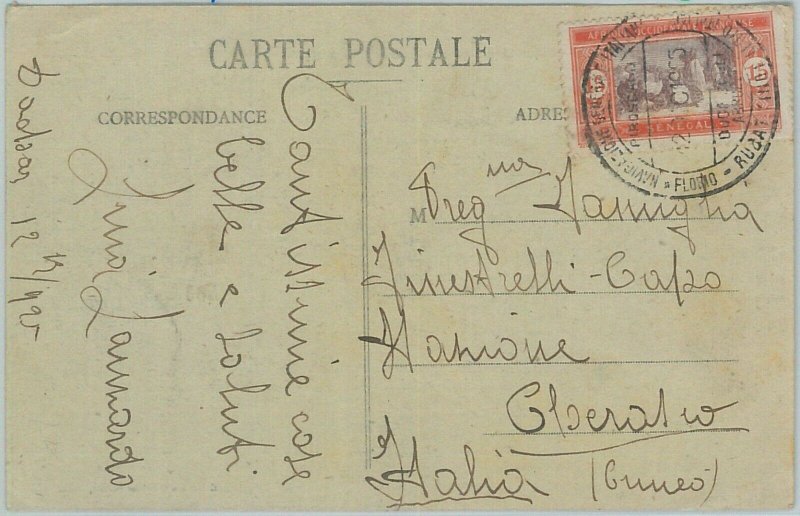 CARTE POSTALE
CORRESPONDANCE
ADRE
AFRIQUE OCCIDENTALE FRANÇAISE
15
SENEGAL
NAVIGAZIONE GENERALE ITALIANA * FLORIO - RUBATTINO
PIROSCAFO
DUCA
Dakar, 12
Tantissime cose
belle e saluti
M
Preg.ma Famiglia
Finestrelli - Capo
Stazione
Cherasco
Italia (Cuneo)